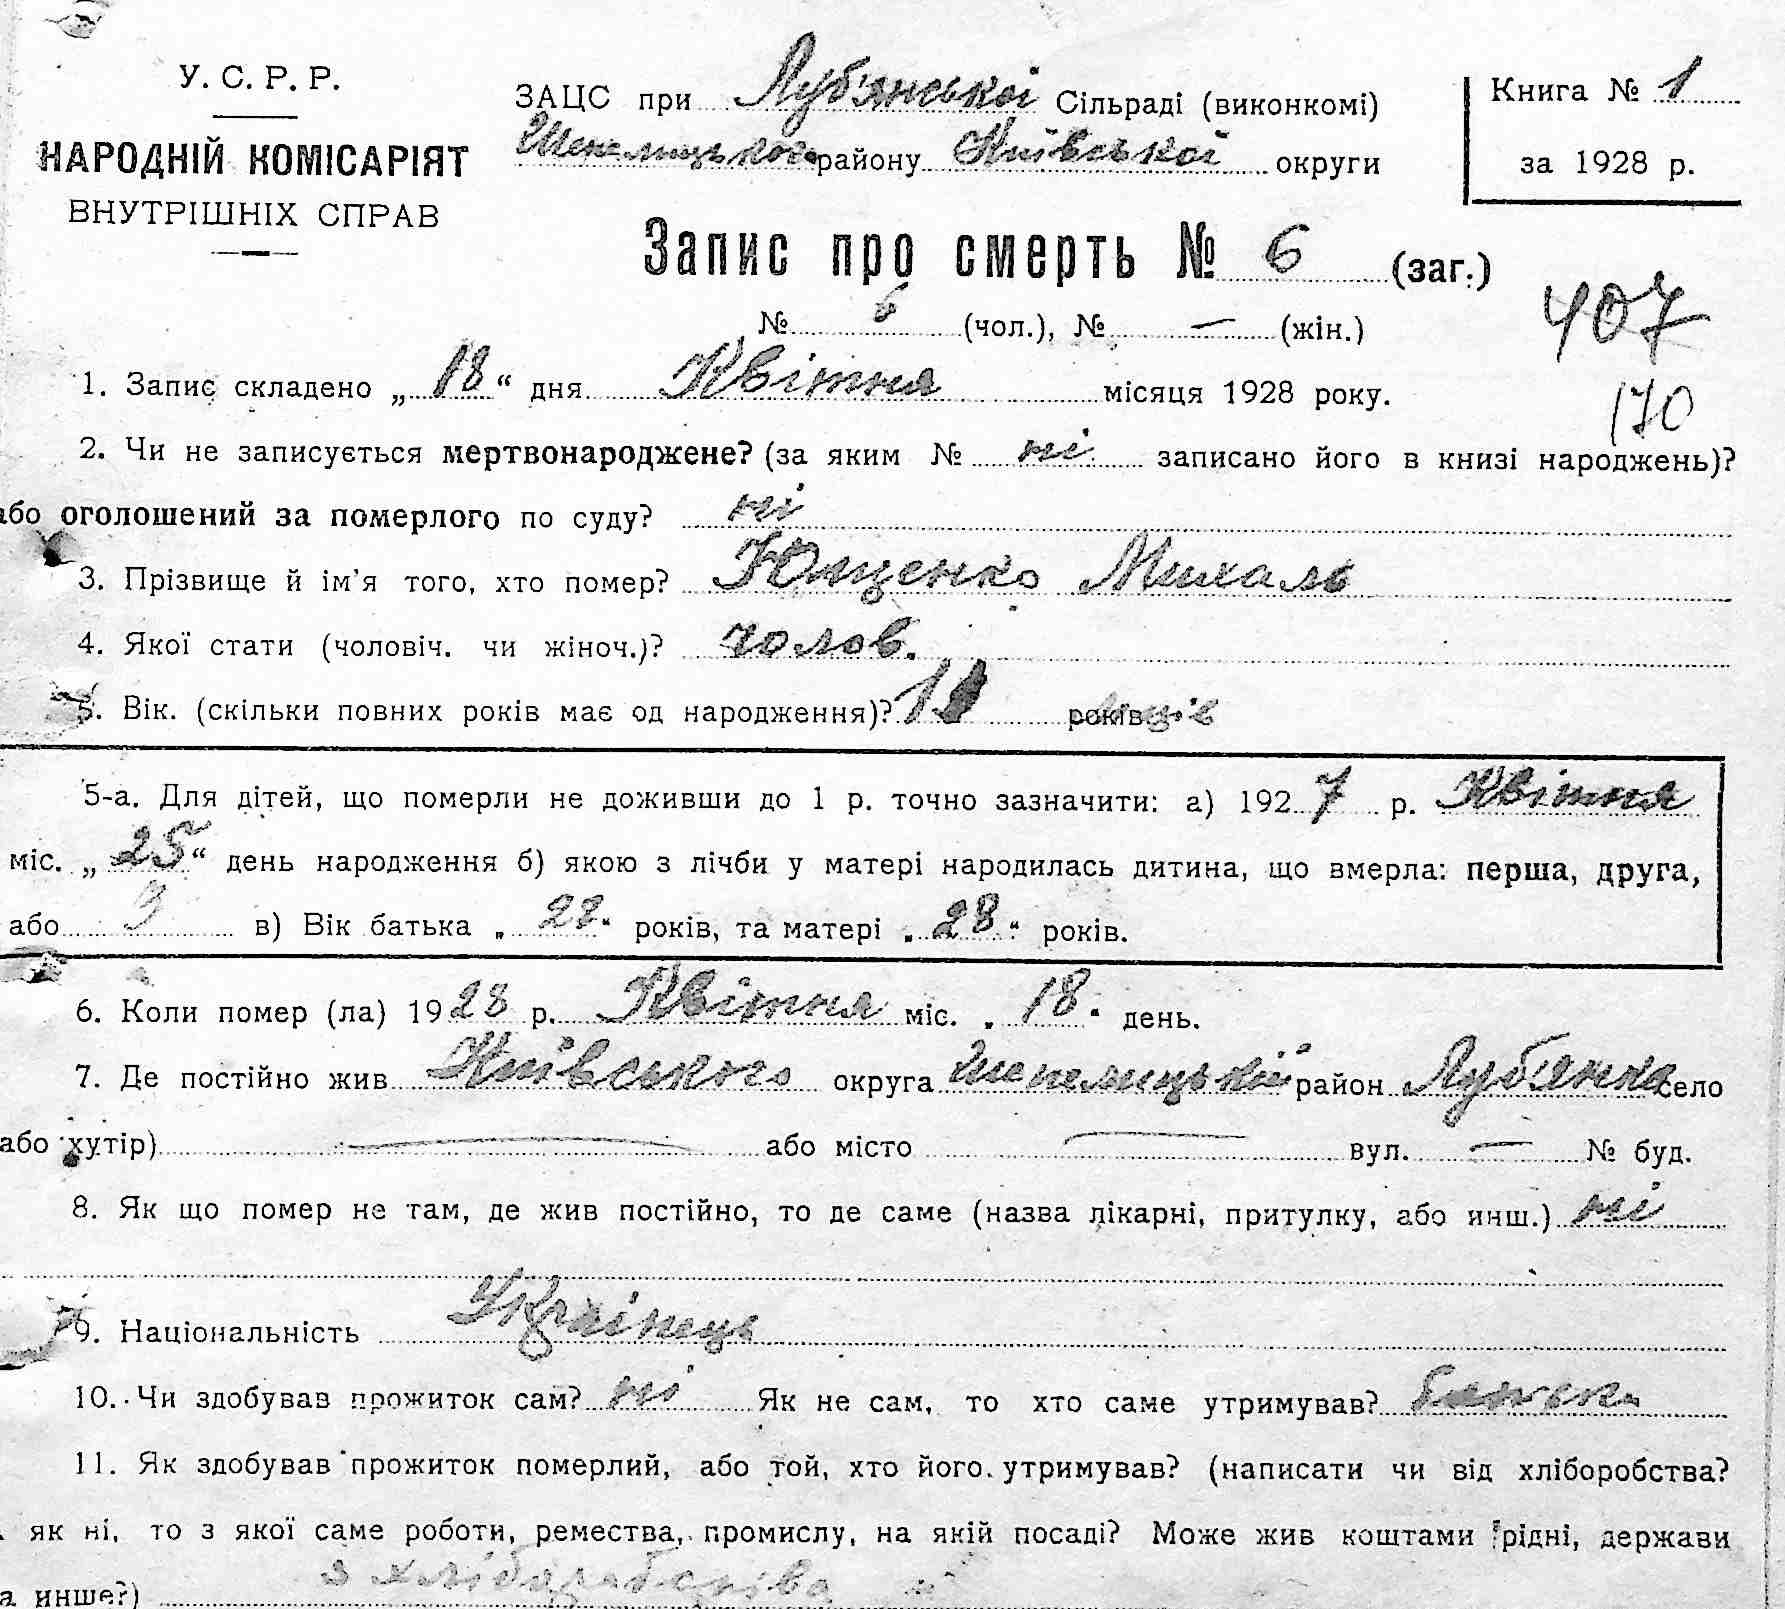 У. С. Р. Р.
НАРОДНІЙ КОМІСАРІЯТ
ВНУТРІШНІХ СПРАВ
ЗАЦС при Луб'янської Сільраді (виконкомі)
Шепелицького району Київської округи
Книга № 1
за 1928 р.
Запис про смерть № 6 (заг.)
№ 6 (чол.), № — (жін.)
407
170
1. Запис складено „18“ дня Квітня місяця 1928 року.
2. Чи не записується мертвонароджене? (за яким № ні записано його в книзі народжень)?
або оголошений за померлого по суду? ні
3. Прізвище й ім'я того, хто помер? Ющенко Михаль
4. Якої стати (чоловіч. чи жіноч.)? голов.
5. Вік. (скільки повних років має од народження)? 11 років
5-а. Для дітей, що померли не доживши до 1 р. точно зазначити: а) 1927 р. Квітня
міс. „25“ день народження б) якою з лічби у матері народилась дитина, що вмерла: перша, друга,
або 3 в) Вік батька „28“ років, та матері „28“ років.
6. Коли помер (ла) 1928 р. Квітня міс. „18“ день.
7. Де постійно жив Київського округа Шепелицький район Луб'янка село
або хутір) — або місто — вул. — № буд.
8. Як що помер не там, де жив постійно, то де саме (назва лікарні, притулку, або инш.) ні
9. Національність Українець
10. Чи здобував прожиток сам? ні Як не сам, то хто саме утримував? батько
11. Як здобував прожиток померлий, або той, хто його утримував? (написати чи від хліборобства?
як ні, то з якої саме роботи, ремества, промислу, на якій посаді? Може жив коштами рідні, держави
а инше?) з